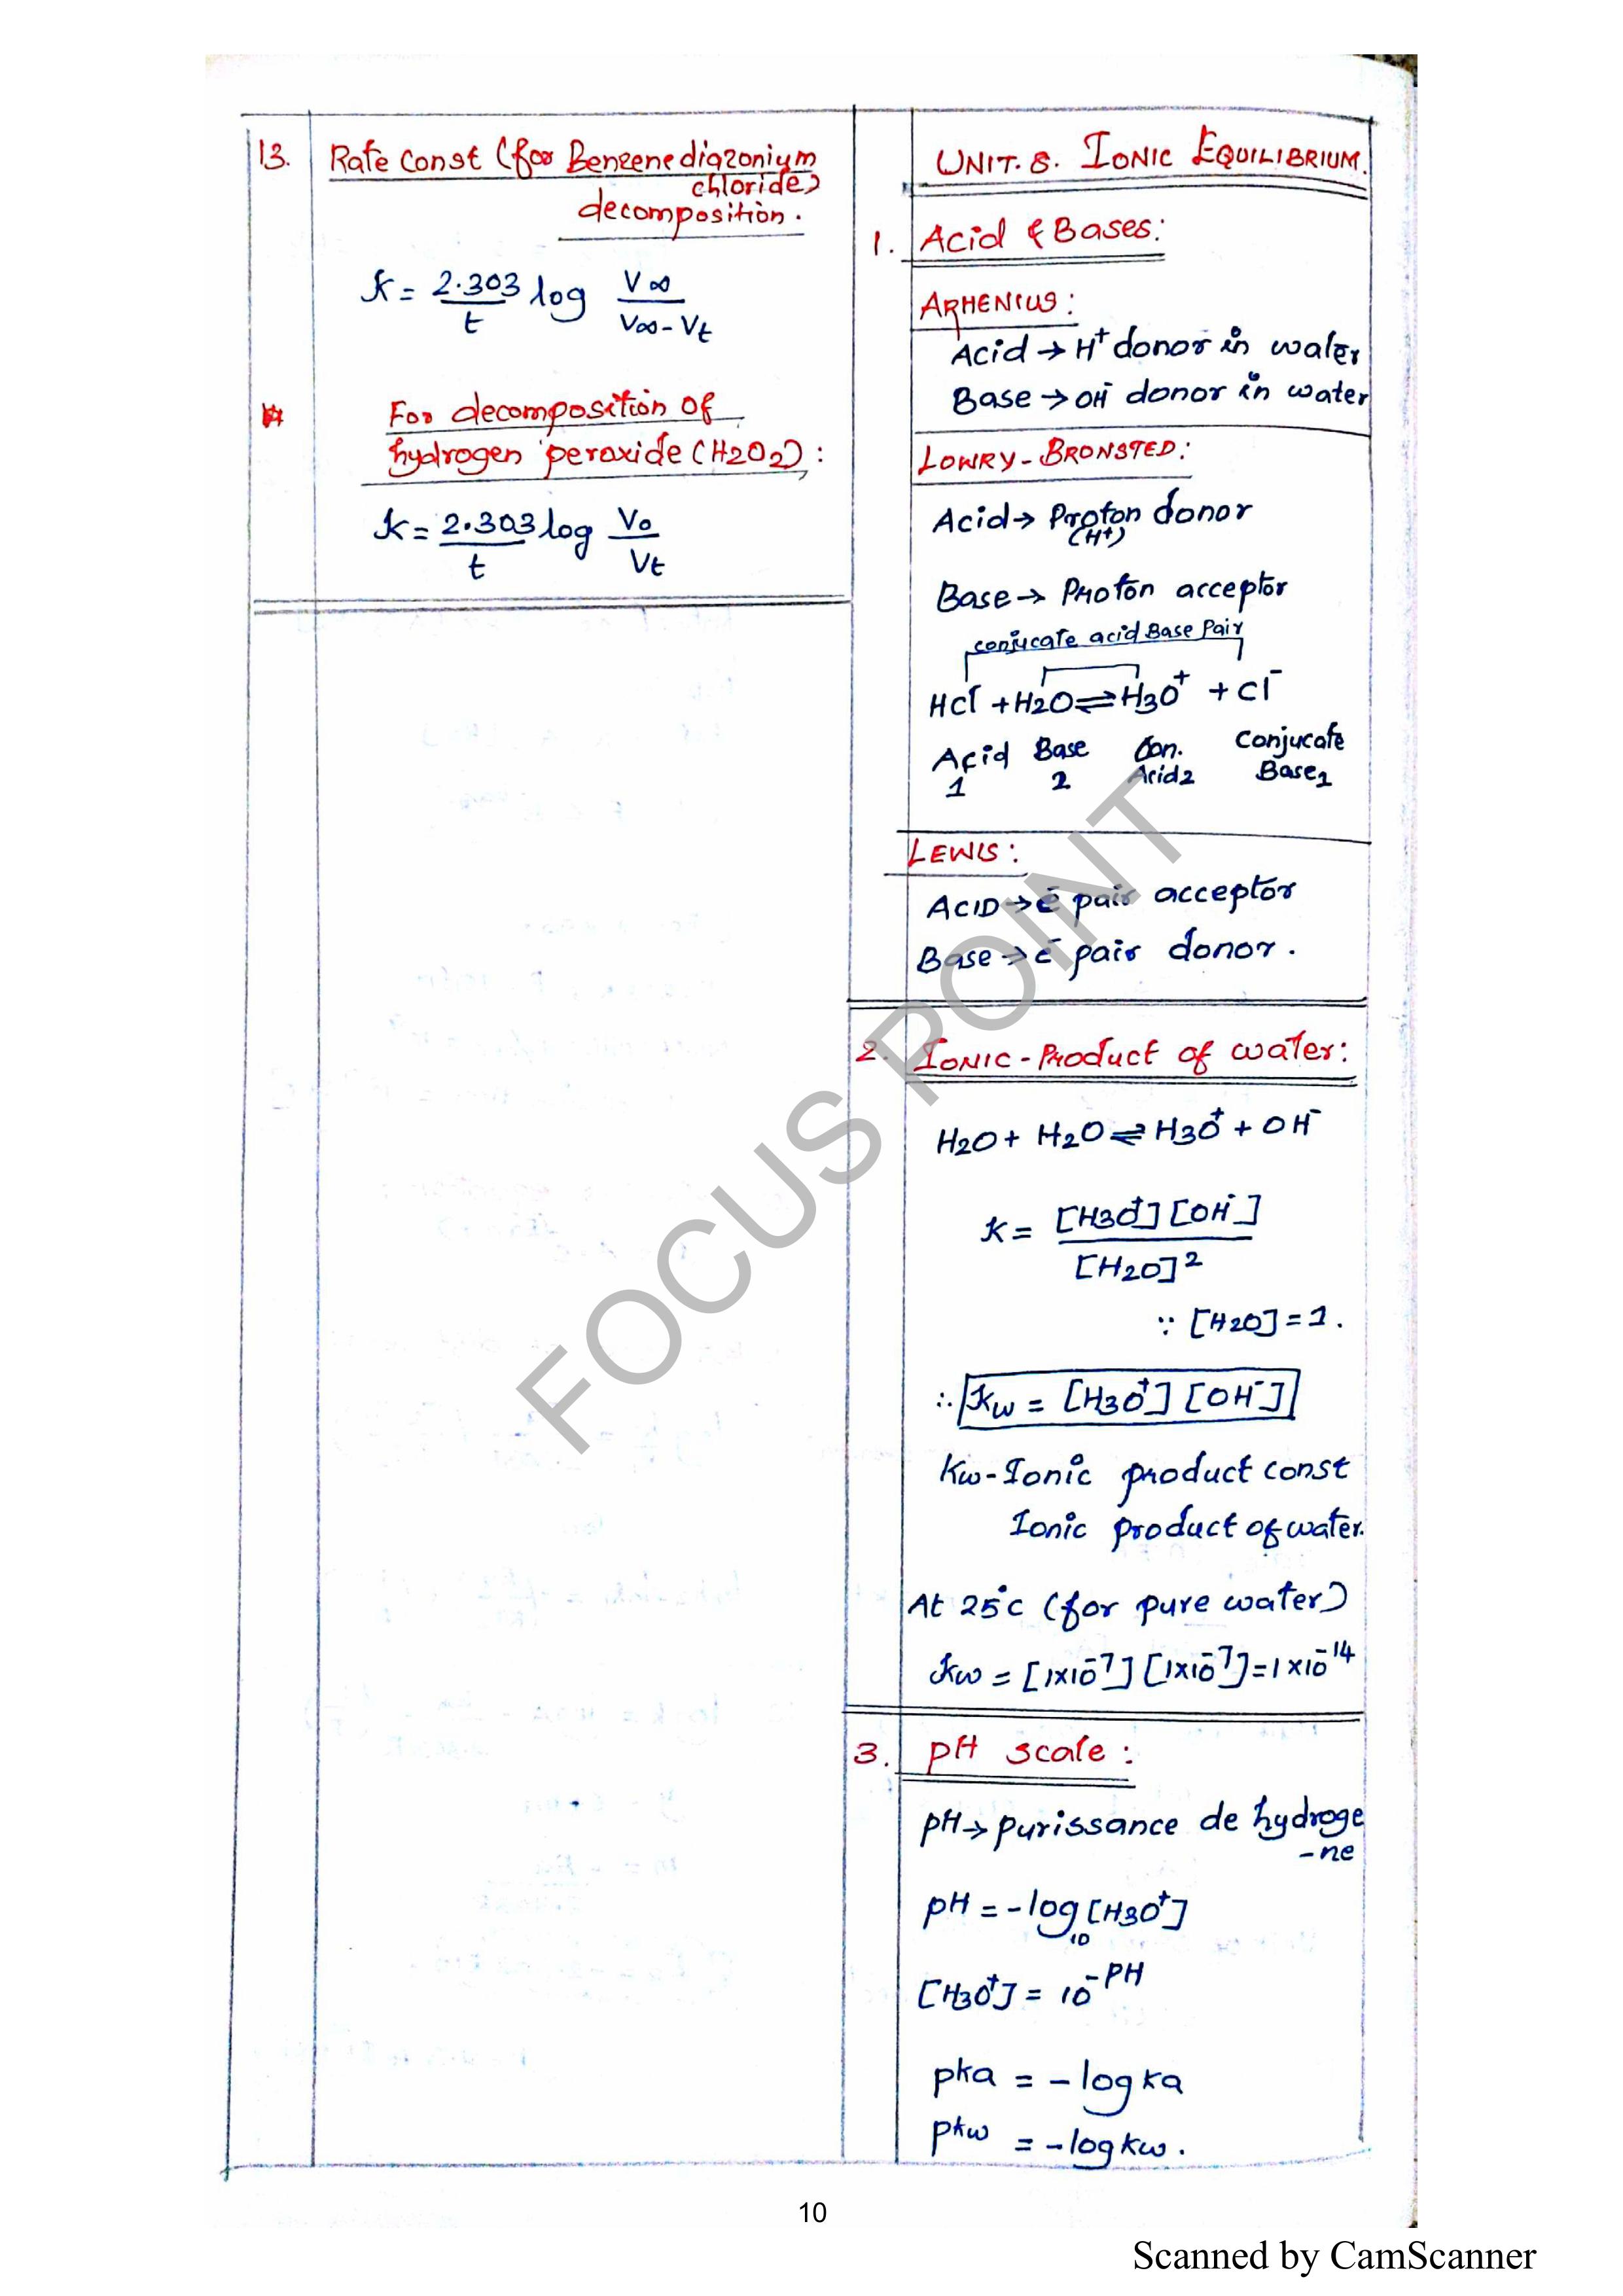 13. Rate Const (for Benzenediazonium
chloride)
decomposition.
k = 2.303/t log V∞/V∞-Vt
For decomposition of
hydrogen peroxide (H2O2) :
k = 2.303/t log Vo/Vt
UNIT. 8. IONIC EQUILIBRIUM.
1. Acid & Bases:
ARHENIUS :
Acid → H⁺ donor in water
Base → OH⁻ donor in water
LOWRY - BRONSTED :
Acid → Proton donor
(H⁺)
Base → Proton acceptor
conjucate acid Base Pair
HCl + H2O ⇌ H3O⁺ + Cl⁻
Acid Base Con. Conjucate
1 2 Acid2 Base1
LEWIS :
ACID → e⁻ pair acceptor
Base → e⁻ pair donor.
2. IONIC - Product of water :
H2O + H2O ⇌ H3O⁺ + OH⁻
K = [H3O⁺] [OH⁻]
[H2O]²
∵ [H2O] = 1.
∴ Kw = [H3O⁺] [OH⁻]
Kw - Ionic product const
Ionic product of water.
At 25°c (for pure water)
Kw = [1×10⁻⁷] [1×10⁻⁷] = 1×10⁻¹⁴
3. pH scale :
pH → purissance de hydroge
-ne
pH = -log₁₀ [H3O⁺]
[H3O⁺] = 10⁻ᴾᴴ
pka = - log ka
pkw = - log kw.
FOCUS POINT
10
Scanned by CamScanner